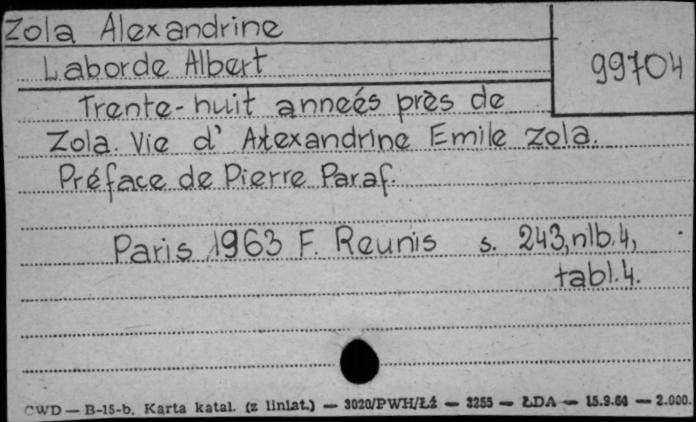 Zola Alexandrine
Laborde Albert
99704
Trente-huit anneés près de
Zola. Vie d' Alexandrine Emile Zola.
Préface de Pierre Paraf.
Paris 1963 F. Reunis s. 243, nlb. 4,
tabl. 4.
CWD — B-15-b. Karta katal. (z liniat.) — 3020/PWH/Łź — 3255 — ŁDA — 15.9.64 — 2.000.